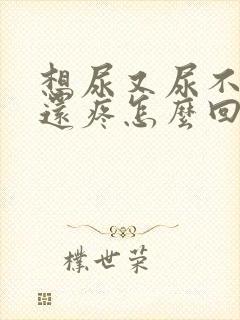 想尿又尿不
還疼怎麼回
樸世荣